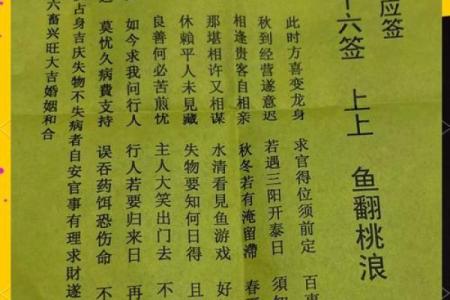 应签
十六签 上上 鱼翻桃浪
此时方喜变龙身 求官得位须前定 百事
秋到经营遂意迟 若遇三阳开泰日 须
相逢贵客自相亲 秋冬若有淹留滞 春
那堪相许又相谋 水清看見鱼游戏 好
休賴平人未見藏 失物要知何日得 且
良善何必苦煎忧 主人大笑出门去 不
如今求我问行人 行人若要归来日 再
莫忧久病費支持 误吞药饵恐伤命 不
占身吉庆失物不失病者自安官事有理求財遂
六畜兴旺大吉婚姻和合